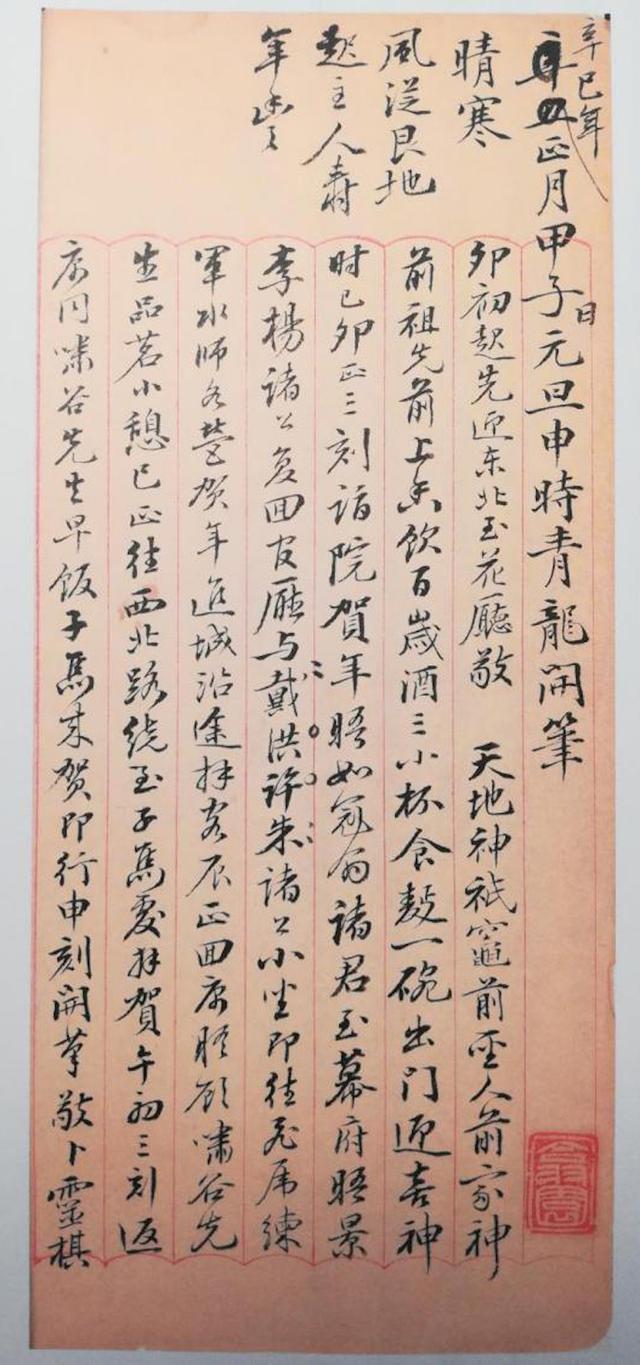 辛巳年
正月甲子日元旦申時青龍開筆
晴寒
風從艮地
起主人壽
年豐
卯初起先迎东北至花廳敬 天地神祇竈前聖人前家神
前祖先前上香飲百歲酒三小杯食麪一碗出門迎喜神
时已卯正三刻詣院賀年晤如冠翁諸君至幕府晤景
李楊諸公复回官廳与戴洪許朱諸公小坐即往飛虎練
軍水師各營贺年進城沿途拜客辰正回寓晤顾嘯谷先
生品茗小憩巳正往西北路绕至子馬處拜賀午初三刻返
寓同嘯谷先生早饭子馬来贺即行申刻開筆敬卜靈棋